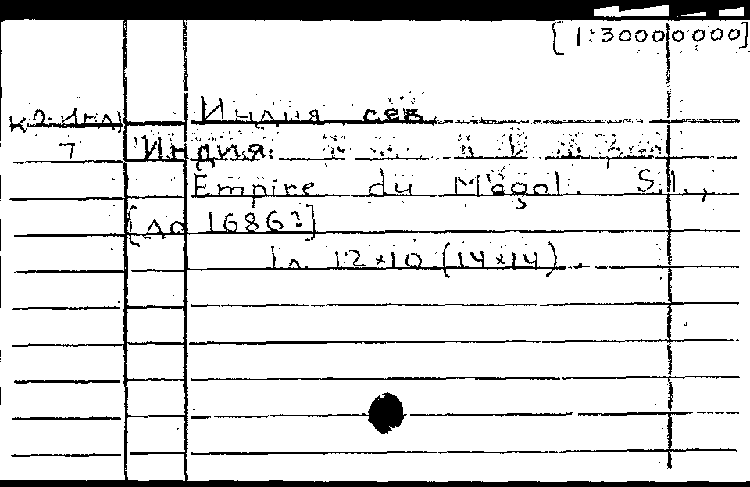 [1:30000000]
Индия сев.
К О-Инд
7
Индия.
Empire du Mogol. S.l.,
[до 1686?]
1 л. 12×10 (14×14).